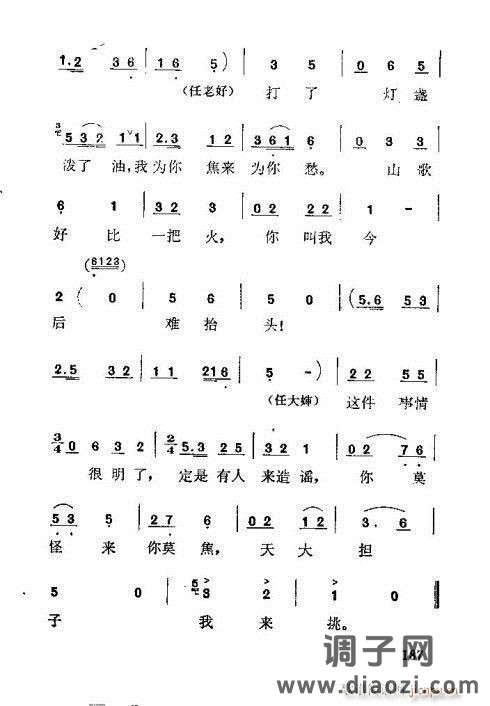 1.2 36 | 16 5) | 3 5 | 0 6 5
(任老好) 打了 灯盏
5 3 2 1 1 | 2.3 1 2 | 3 6 1 6 | 0 3 3
泼了 油,我为你 焦来 为你 愁。 山歌
6 1 | 3 2 3 | 0 2 2 2 | 1 -
好比 一把火, 你 叫我 今
(6123)
2 ( 0 | 5 6 | 5 0 | (5.6 5 3
后 难抬 头!
2.5 3 2 | 1 1 216 | 5 -) | 2 2 5 5
(任大婶) 这件 事情
3/4 0 6 3 2 | 2/4 5.3 2 5 | 3 2 1 6 | 0 2 7 6
很明了, 定是有人 来造谣, 你 莫
5 3 5 | 2 7 6 | 0 2 1 2 | 3. 6
怪 来 你莫焦, 天大 担
5 0 | 3 2 | 1 0
子 我来 挑。
187
调子网
www.diaozi.com